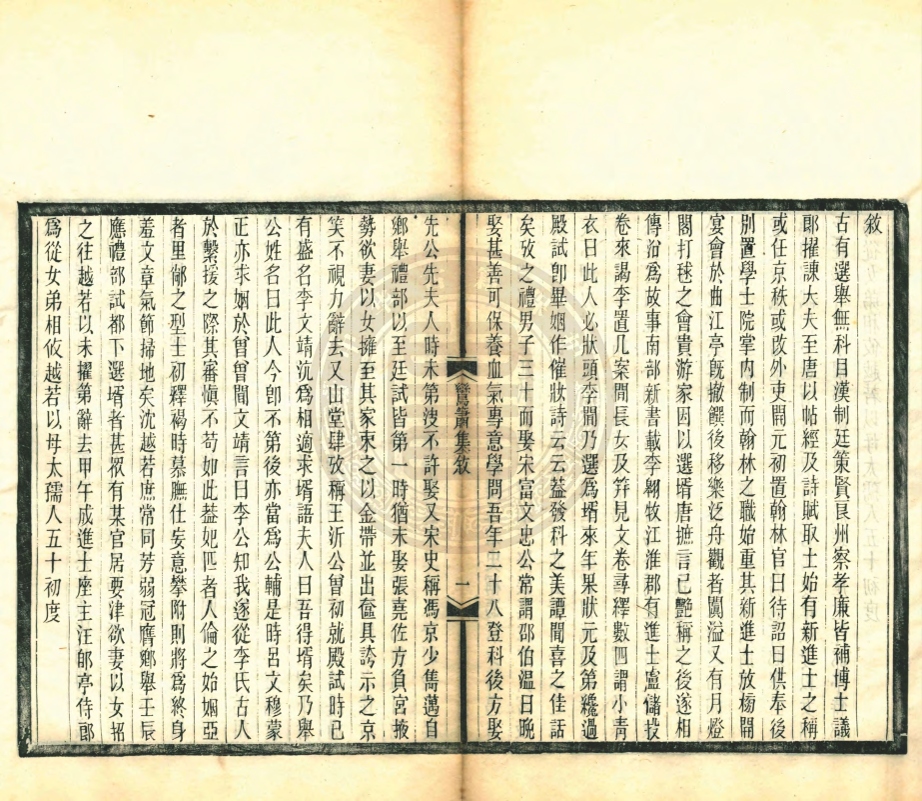 敘
古有選舉無科目漢制廷策賢良州察孝廉皆補博士議
郎擢諫大夫至唐以帖經及詩賦取士始有新進士之稱
或任京秩或改外吏開元初置翰林官曰待詔曰供奉後
別置學士院掌內制而翰林之職始重其新進士放榜開
宴會於曲江亭旣撤饌後移樂泛舟觀者闐溢又有月燈
閣打毬之會貴游家因以選壻唐摭言已艷稱之後遂相
傳沿爲故事南部新書載李翺牧江淮郡有進士盧儲投
卷來謁李置几案間長女及笄見文卷尋繹數四謂小靑
衣曰此人必狀頭李聞乃選爲壻來年果狀元及第纔過
殿試卽畢姻作催妝詩云云葢發科之美譚聞喜之佳話
矣攷之禮男子三十而娶宋富文忠公常謂邵伯溫曰晩
娶甚善可保養血氣專意學問吾年二十八登科後方娶
集敘
一
先公先夫人時未第決不許娶又宋史稱馮京少雋邁自
鄉舉禮部以至廷試皆第一時猶未娶張嘉佐方負宮掖
勢欲妻以女擁至其家束之以金帶並出奩具誇示之京
笑不視力辭去又山堂肆攷稱王沂公曾初就殿試時已
有盛名李文靖沆爲相適求壻語夫人曰吾得壻矣乃舉
公姓名曰此人今卽不第後亦當爲公輔是時呂文穆蒙
正亦求姻於曾曾聞文靖言曰李公知我遂從李氏古人
於繫援之際其審愼不苟如此葢妃匹者人倫之始姻亞
者里鄰之型士初釋褐時慕膴仕妄意攀附則將爲終身
羞文章氣節掃地矣沈越若庶常同芳弱冠膺鄉舉壬辰
應禮部試都下選壻者甚衆有某官居要津欲妻以女招
之往越若以未擢第辭去甲午成進士座主汪郋亭侍郎
爲從女弟相攸越若以母太孺人五十初度